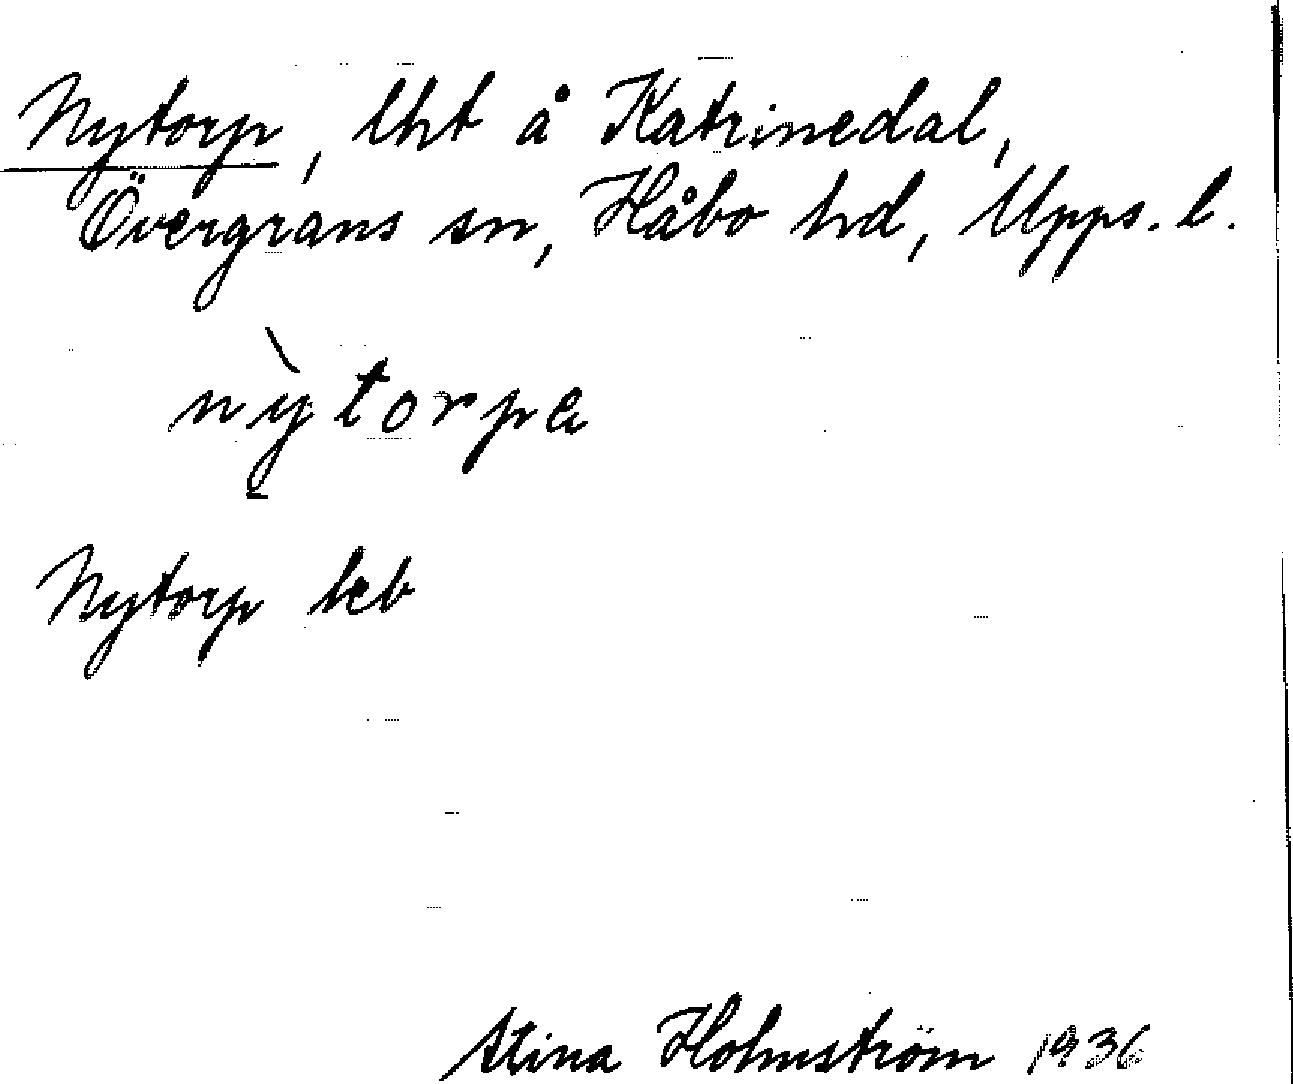 Nytorp, lht å Katrinedal,
Övergrans sn, Håbo hd, Upps. l.
nỳtorpa
Nytorp keb
Stina Holmström 1936